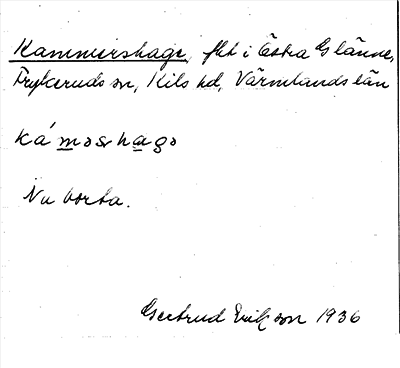 Kammershage, fht i Östra Glänne,
Frykeruds sn, Kils hd, Värmlands län
ká̱mɔshago
Nu borta.
Gertrud Erikson 1936